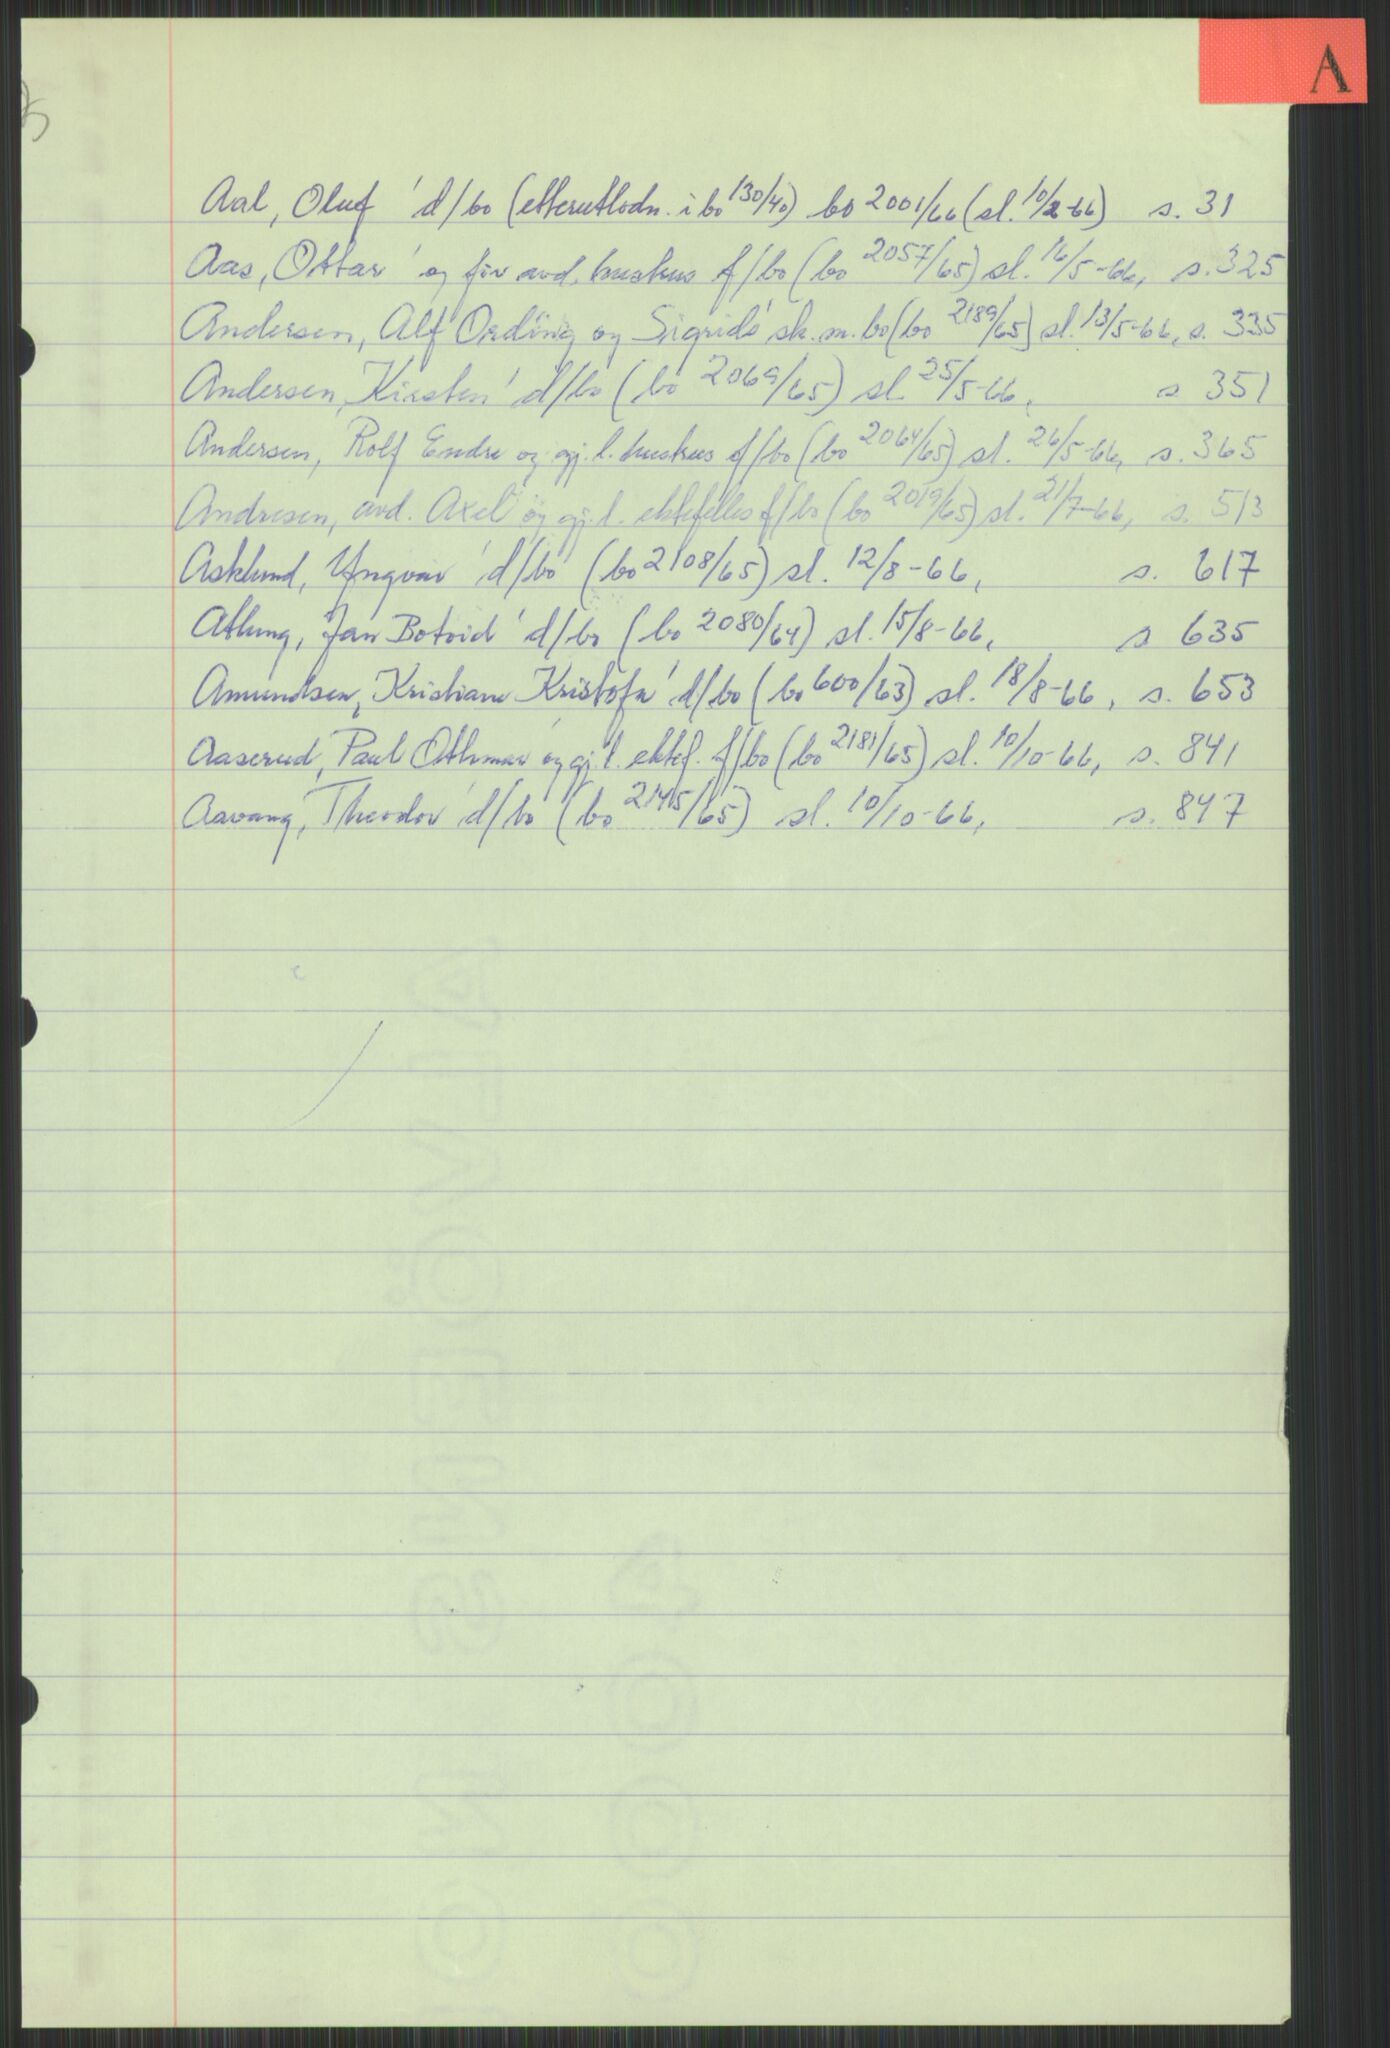 A
Aal, Oluf' d/bo (etterutlodn. i bo 130/40) bo 2001/66 (sl. 10/2-66) s. 31
Aas, Ottar' og før avd. hustrus f/bo (bo 2057/65) sl. 16/5-66, s. 325
Andersen, Alf Ording og Sigrids' sk. m. bo (bo 2189/65) sl. 13/5-66, s. 335
Andersen, Kirsten' d/bo (bo 2069/65) sl 25/5-66, s 351
Andersen, Rolf Endre og gj. l. hustrus f/bo (bo 2064/65) sl. 26/5-66, s. 365
Andresen, avd. Axel og gj. l. ektefelles f/bo (bo 2019/65) sl. 21/7-66, s. 513
Asklund, Yngvar' d/bo (bo 2108/65) sl. 12/8-66, s. 617
Athung, Jan Botvid' d/bo (bo 2080/64) sl. 15/8-66, s 635
Amundsen, Kristiane Kristofa' d/bo (bo 600/63) sl. 18/8-66, s. 653
Aaserud, Paul Othmar' og gj. l. ektef. f/bo (bo 2181/65) sl. 10/10-66, s. 841
Aavang, Theodor' d/bo (bo 2145/65) sl. 10/10-66, s. 847